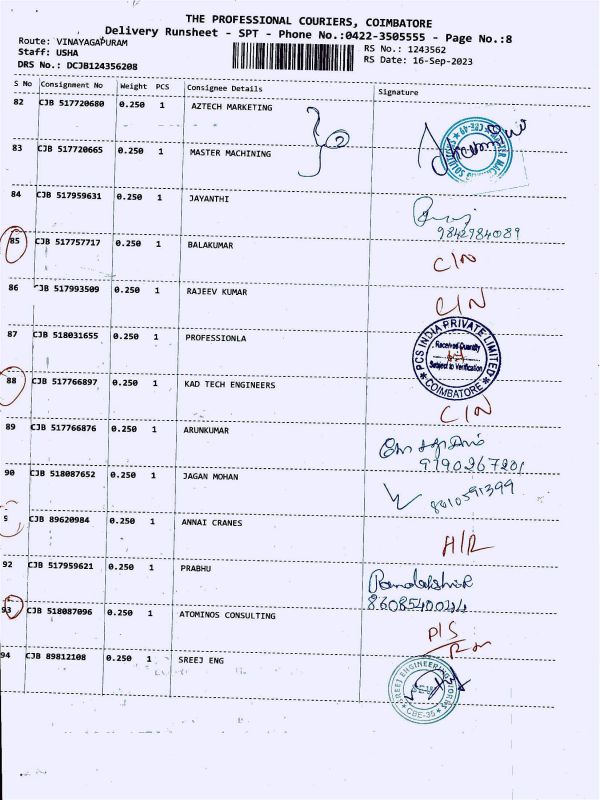 THE PROFESSIONAL COURIERS, COIMBATORE
Delivery Runsheet - SPT - Phone No.:0422-3505555 - Page No.:8
Route: VINAYAGAPURAM
RS No.: 1243562
Staff: USHA
RS Date: 16-Sep-2023
DRS No.: DCJB124356208
S No Consignment No Weight PCS Consignee Details Signature
82 CJB 517720680 0.250 1 AZTECH MARKETING
83 CJB 517720665 0.250 1 MASTER MACHINING
84 CJB 517959631 0.250 1 JAYANTHI
9842984089
85 CJB 517757717 0.250 1 BALAKUMAR
C/N
86 CJB 517993509 0.250 1 RAJEEV KUMAR
C/N
87 CJB 518031655 0.250 1 PROFESSIONLA
PCS INDIA PRIVATE LIMITED
Received Quantity
Subject to Verification
COIMBATORE
88 CJB 517766897 0.250 1 KAD TECH ENGINEERS
C/N
89 CJB 517766876 0.250 1 ARUNKUMAR
9190267201
90 CJB 518087652 0.250 1 JAGAN MOHAN
8010591399
9 CJB 89620984 0.250 1 ANNAI CRANES
92 CJB 517959621 0.250 1 PRABHU
93 CJB 518087096 0.250 1 ATOMINOS CONSULTING
P/S
94 CJB 89812108 0.250 1 SREEJ ENG
SREEJ ENGINEERING WORKS
CBE-35